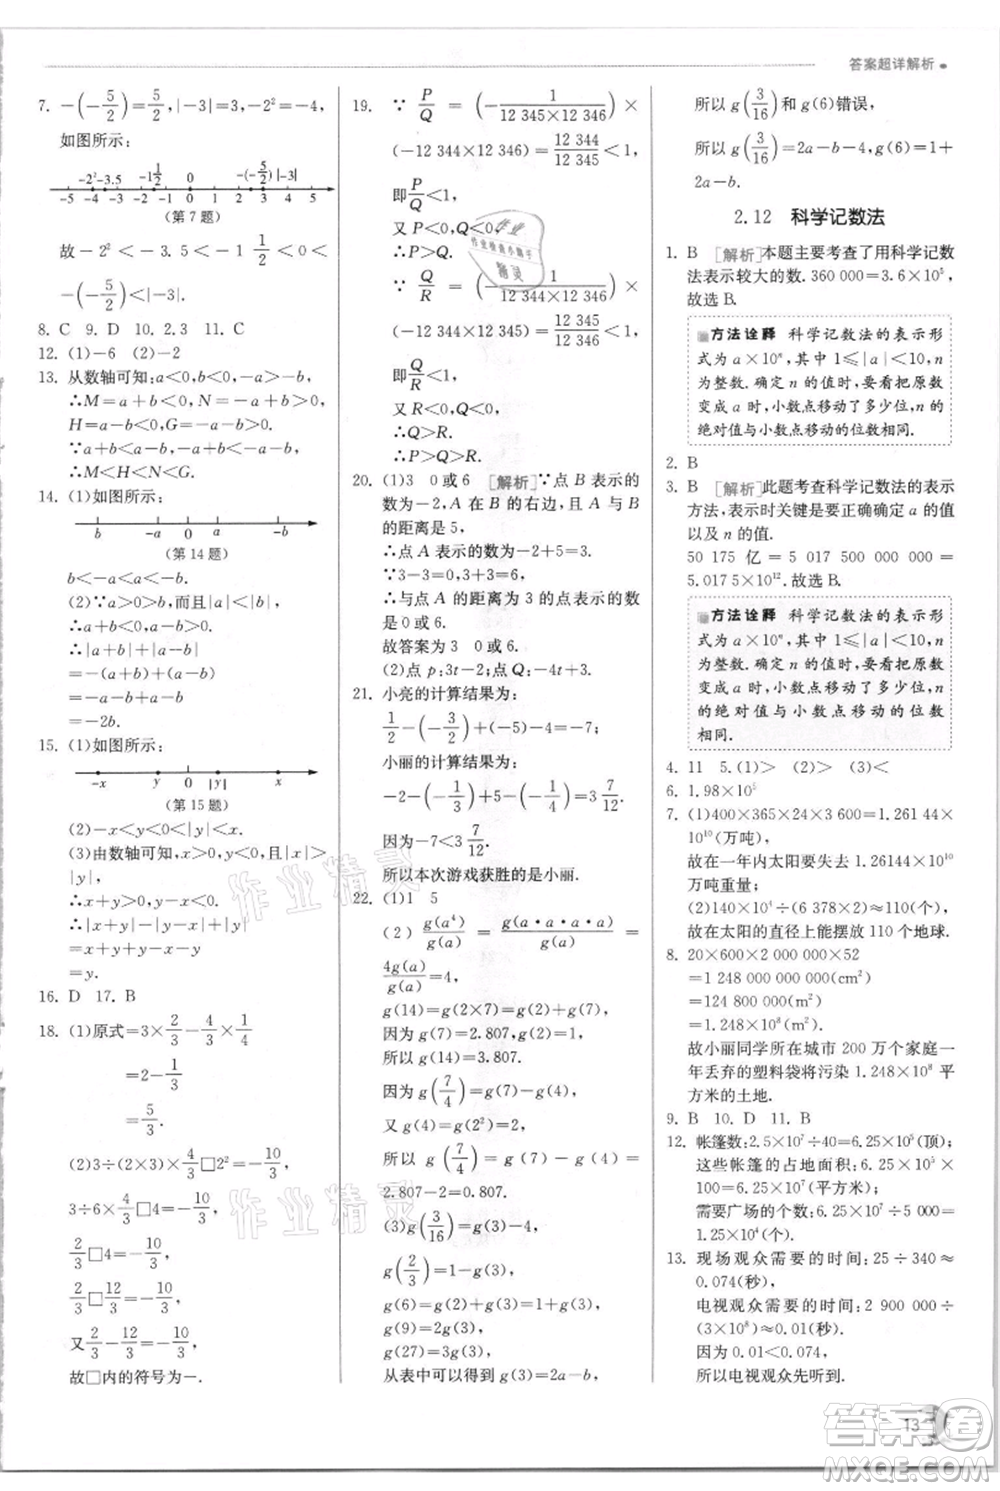 答案超详解析
7. -(-5/2)=5/2,|-3|=3,-2²=-4,
如图所示:
-2² -3.5 -1 1/2 0 -(-5/2) |-3|
-5 -4 -3 -2 -1 0 1 2 3 4 5
(第7题)
故-2²<-3.5<-1 1/2<0<
-(-5/2)<|-3|.
8. C 9. D 10. 2.3 11. C
12. (1)-6 (2)-2
13. 从数轴可知:a<0,b<0,-b>-a>0,
∴M=a+b<0,N=-a+b<0,
H=a-b<0,G=-a-b>0.
∵a+b<-a+b<a-b<-a-b,
∴M<H<N<G.
14. (1)如图所示:
b -a 0 a -b
(第14题)
b<-a<a<-b.
(2)∵b<-a<0<a<|b|,
∴a+b<0,a-b>0.
∴|a+b|+|a-b|
=-(a+b)+(a-b)
=-a-b+a-b
=-2b.
15. (1)如图所示:
-x y 0 |y| x
(第15题)
(2)-x<y<0<|y|<x.
(3)由数轴可知,x>0,y<0,|x|>
|y|,
∴x+y>0,y-x<0.
∴|x+y|-|y-x|+|y|
=x+y+y-x-y
=y.
16. D 17. B
18. (1)原式=3×2/3-4/3×1/4
=2-1/3
=5/3.
(2)3÷(2×3)×4/3□2²=-10/3,
3÷6×4/3□4=-10/3,
2/3□4=-10/3,
2/3□12/3=-10/3,
又2/3-12/3=-10/3,
故□内的符号为-.
19. ∵P/Q=(-1/(12 345×12 346))×
(-12 344×12 346)=12 344/12 345<1,
即P/Q<1,
又P<0,Q<0,
∴P>Q.
∵Q/R=(-1/(12 346×12 346))×
(-12 345×12 345)=12 345/12 346<1,
即Q/R<1,
又Q<0,R<0,
∴Q>R.
∴P>Q>R.
20. (1)3 0或6 [解析]∵点B表示的
数为-2,A在B的右边,且A与B
的距离是5,
∴点A表示的数为-2+5=3.
∵3-3=0,3+3=6,
∴与点A的距离为3的点表示的数
是0或6.
故答案为3 0或6.
(2)点p:3t-2;点Q:-4t+3.
21. 小亮的计算结果为:
1/2-(-3/2)+(-5)-4=-7;
小丽的计算结果为:
-2-(-1/3)+5-(-1/4)=3 7/12.
因为-7<3 7/12.
所以本次游戏获胜的是小丽.
22. (1)1 5
(2)g(a⁴)/g(a)=g(a·a·a·a)/g(a)=
4g(a)/g(a)=4,
g(14)=g(2×7)=g(2)+g(7),
因为g(7)=2.807,g(2)=1,
所以g(14)=3.807.
因为g(7/4)=g(7)-g(4),
又g(4)=g(2²)=2,
所以g(7/4)=g(7)-g(4)=
2.807-2=0.807.
(3)g(3/16)=g(3)-4g(2),
g(2/3)=g(2)-g(3),
g(6)=g(2)+g(3)=1+g(3),
g(9)=2g(3),
g(27)=3g(3),
从表中可以得到g(3)=2a-b,
所以g(3/16)和g(6)错误,
所以g(3/16)=2a-b-4,g(6)=1+
2a-b.
2.12 科学记数法
1. B [解析]本题主要考查了用科学记数
法表示较大的数.360 000=3.6×10⁵,
故选B.
方法诠释 科学记数法的表示形
式为a×10ⁿ,其中1≤|a|<10,n
为整数.确定n的值时,要看把原数
变成a时,小数点移动了多少位,n的
绝对值与小数点移动的位数相同.
2. B
3. B [解析]此题考查科学记数法的表示
方法,表示时关键是要正确确定a的值
以及n的值.
50 175亿=5 017 500 000 000=
5.017 5×10¹².故选B.
方法诠释 科学记数法的表示形
式为a×10ⁿ,其中1≤|a|<10,n
为整数.确定n的值时,要看把原数
变成a时,小数点移动了多少位,n
的绝对值与小数点移动的位数
相同.
4. 11 5. (1)> (2)> (3)<
6. 1.98×10⁵
7. (1)400×365×24×3 600=1.261 44×
10¹⁰(万吨),
故在一年内太阳要失去1.26144×10¹⁰
万吨重量;
(2)140×10⁴÷(6 378×2)≈110(个),
故在太阳的直径上能摆放110个地球.
8. 20×600×2 000 000×52
=1 248 000 000 000(cm²)
=124 800 000(m²)
=1.248×10⁸(m²).
故小丽同学所在城市200万个家庭一
年丢弃的塑料袋将污染1.248×10⁸平
方米的土地.
9. B 10. D 11. B
12. 帐篷数:2.5×10⁷÷40=6.25×10⁵(顶);
这些帐篷的占地面积:6.25×10⁵×
100=6.25×10⁷(平方米);
需要广场的个数:6.25×10⁷÷5 000=
1.25×10⁴(个).
13. 现场观众需要的时间:25÷340≈
0.074(秒),
电视观众需要的时间:2 900 000÷
(3×10⁸)≈0.01(秒).
因为0.01<0.074,
所以电视观众先听到.
13
作业精灵
作业精灵
答案圈
MXQE.COM